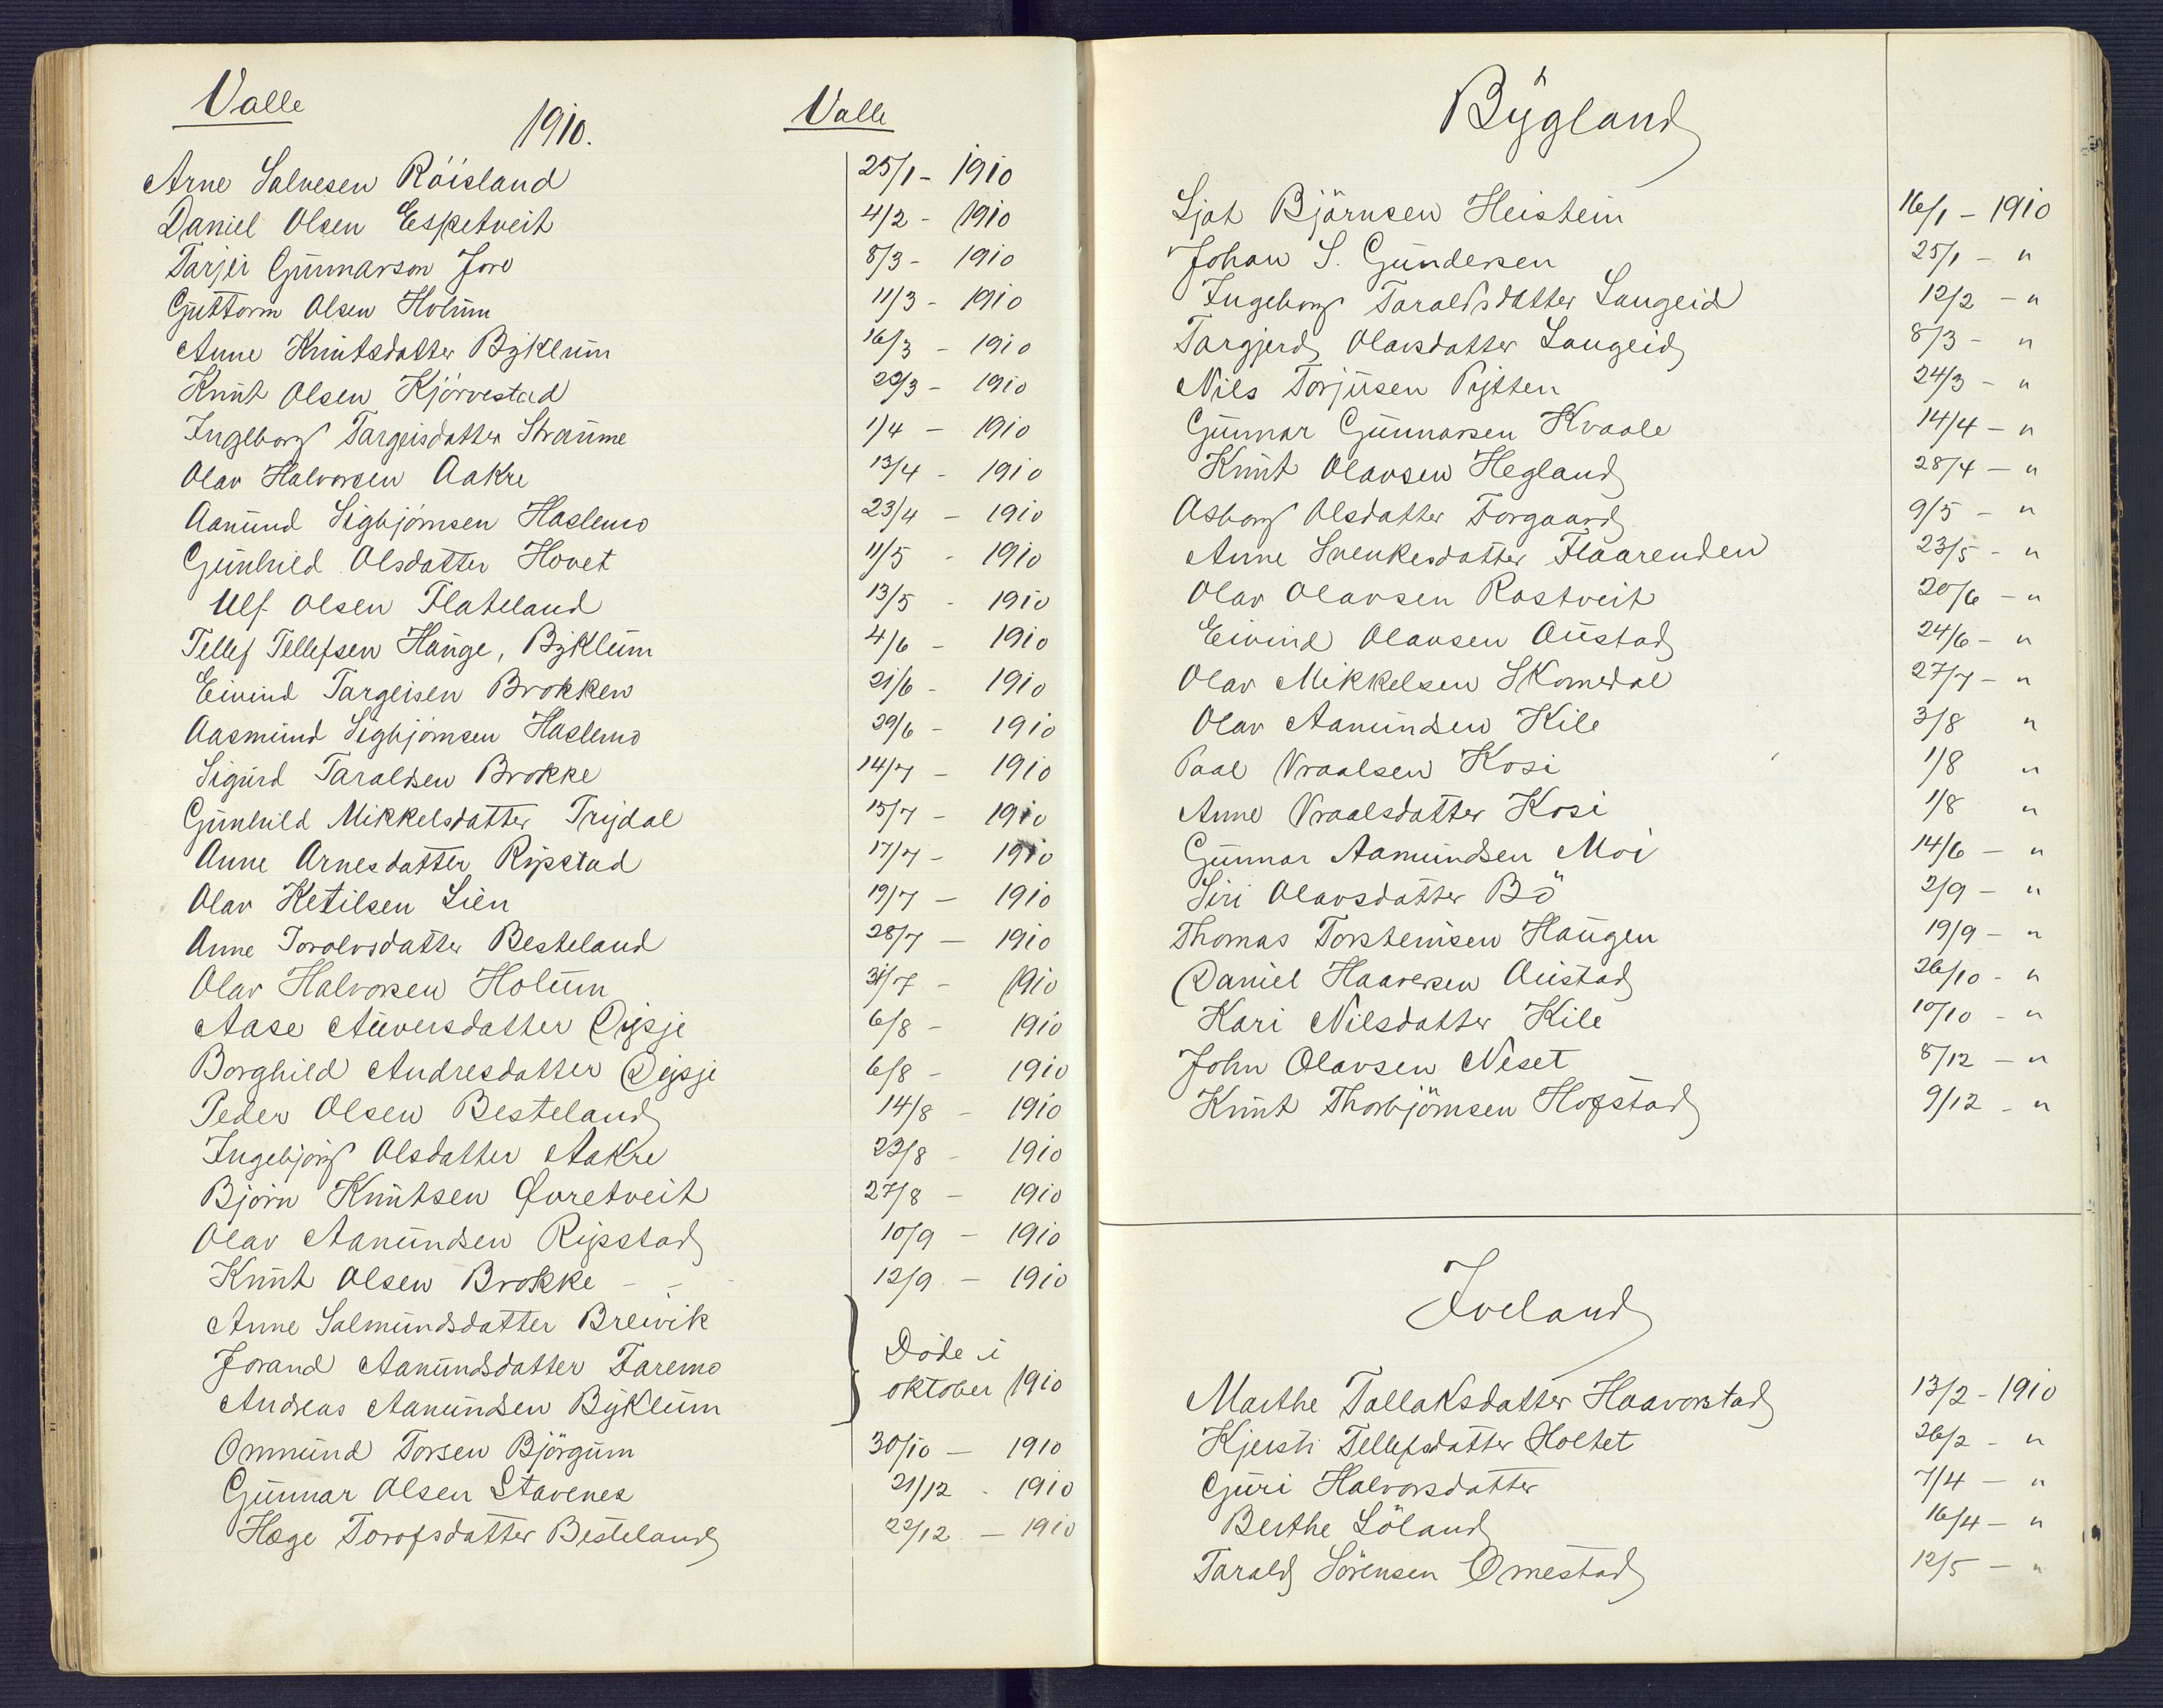 Valle
1910.
Valle
Arne Salvesen Röisland 25/1 - 1910
Daniel Olsen Espetveit 4/2 - 1910
Tarjei Gunnarson Jore 8/3 - 1910
Guttorm Olsen Holum 11/3 - 1910
Anne Knutsdatter Byklum 16/3 - 1910
Knut Olsen Kjörvestad 29/3 - 1910
Ingeborg Targeisdatter Straume 1/4 - 1910
Olav Halvorsen Aakre 13/4 - 1910
Aanund Sigbjörnsen Haslemo 23/4 - 1910
Gunhild Olsdatter Hovet 11/5 - 1910
Ulf Olsen Flateland 13/5 - 1910
Tellef Tellefsen Hauge, Byklum 4/6 - 1910
Eivind Targeisen Brokken 21/6 - 1910
Aasmund Sigbjörnsen Haslemo 29/6 - 1910
Sigurd Taraldsen Brokke 14/7 - 1910
Gunhild Mikkelsdatter Trydal 15/7 - 1910
Anne Arnesdatter Rysstad 17/7 - 1910
Olav Ketilsen Lien 19/7 - 1910
Anne Torolvsdatter Besteland 28/7 - 1910
Olav Halvorsen Holum 31/7 - 1910
Aase Auversdatter Dysje 6/8 - 1910
Borghild Andresdatter Dysje 6/8 - 1910
Peder Olsen Besteland 14/8 - 1910
Ingebjörg Olsdatter Aakre 23/8 - 1910
Björn Knutsen Qvretveit 27/8 - 1910
Olav Aanundsen Rysstad 10/9 - 1910
Knut Olsen Brokke - - 12/9 - 1910
Anne Salmundsdatter Breivik
Jorand Aanundsdatter Faremo
Andreas Aanundsen Byklum
Döde i
oktober 1910
Ommund Torsen Björgum 30/10 - 1910
Gunnar Olsen Stavenes 21/12 - 1910
Hæge Torofsdatter Besteland 22/12 - 1910
Bygland
Ljot Björnsen Heistein 16/1 - 1910
Johan S. Gundersen 25/1 - "
Ingeborg Taraldsdatter Langeid 12/2 - "
Targjerd Olavsdatter Langeid 8/3 - "
Nils Torjusen Pytten 24/3 - "
Gunnar Gunnarsen Kvaale 14/4 - "
Knut Olavsen Hegland 28/4 - "
Asborg Olsdatter Forgaard 9/5 - "
Anne Svenkesdatter Flaarenden 23/5 - "
Olav Olavsen Rostveit 20/6 - "
Eivind Olavsen Austad 24/6 - "
Olav Mikkelsen Skomedal 27/7 - "
Olav Aamundsen Kile 3/8 "
Paal Vraalsen Kosi 1/8 "
Anne Vraalsdatter Kosi 1/8 "
Gunnar Aamundsen Moi 14/6 - "
Siri Olavsdatter Bö 2/9 - "
Thomas Torsteinsen Haugen 19/9 - "
Daniel Haaversen Austad 26/10 - "
Kari Nilsdatter Kile 10/10 - "
John Olavsen Neset 8/12 - "
Knut Thorbjörnsen Hofstad 9/12 - "
Iveland
Marthe Tallaksdatter Haavorstad 13/2 - 1910
Kjersti Tellefsdatter Holtet 26/2 - "
Guri Halvorsdatter 7/4 - "
Berthe Löland 16/4 - "
Tarald Sörensen Omestad 12/5 - "